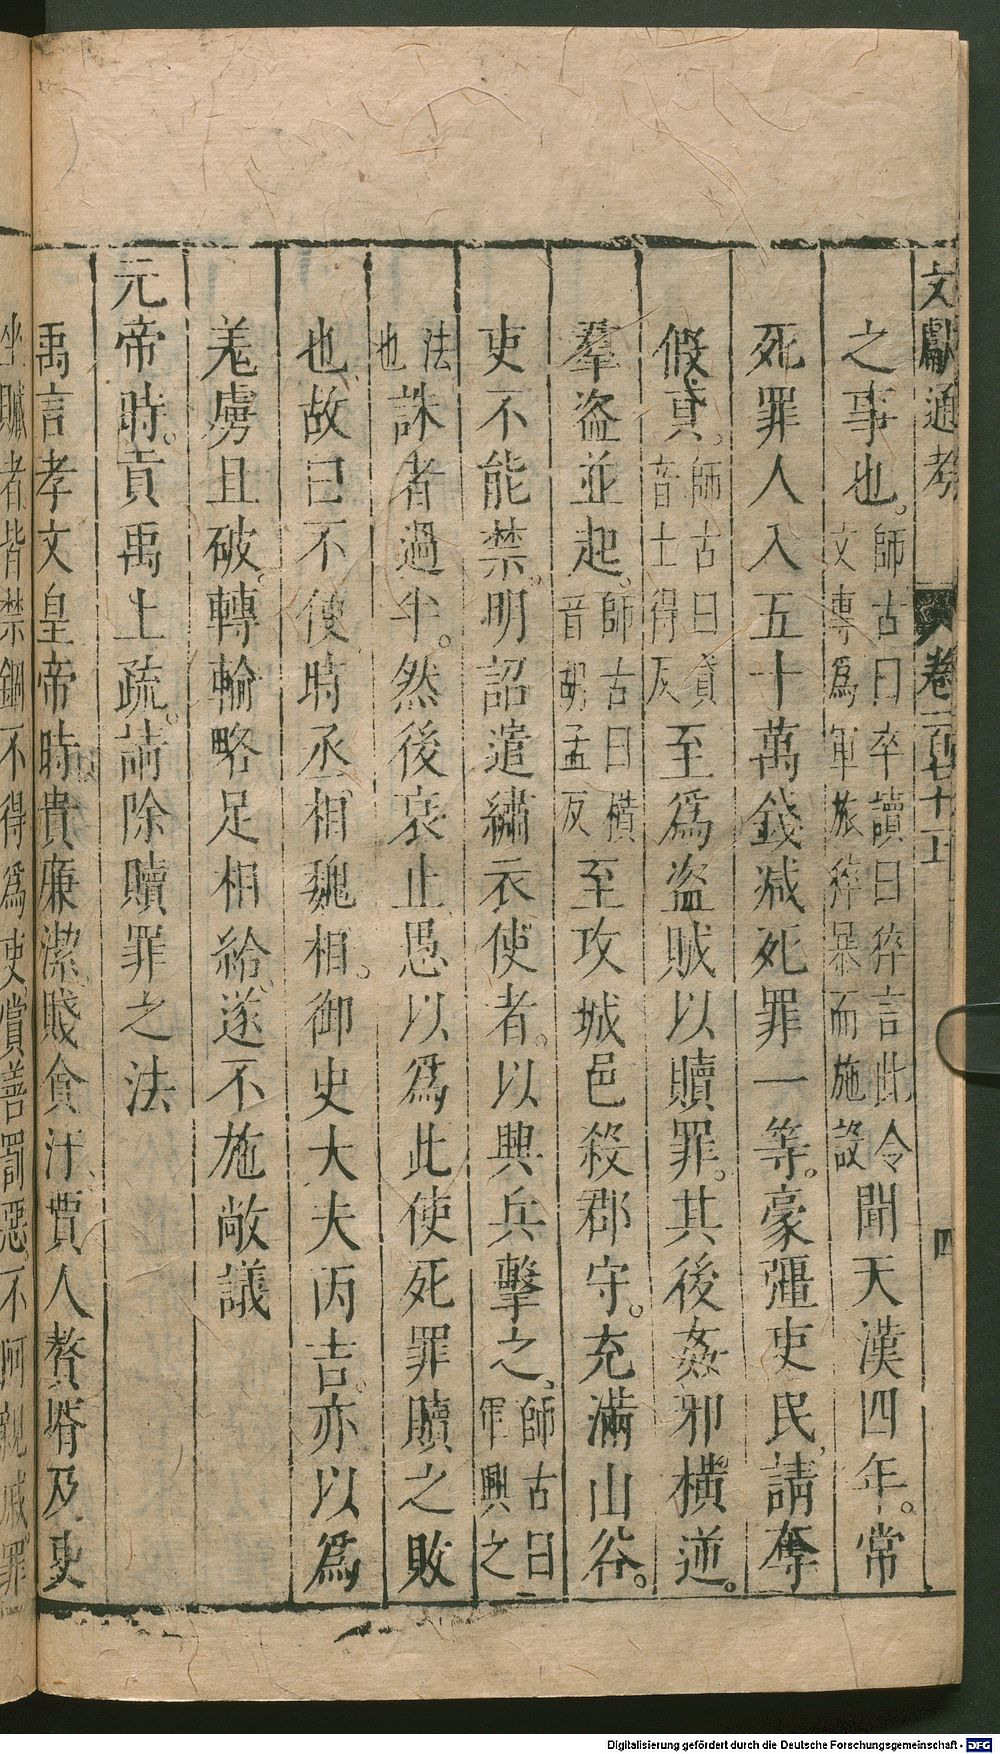 文獻通考 卷一百七十上 四
之事也。師古曰卒讀曰猝言此令文專爲軍旅猝暴而施設聞天漢四年。常
死罪人入五十萬錢减死罪一等。豪彊吏民請奪
假貣。師古曰貣音土得反至爲盗賊以贖罪。其後姦邪横逆。
羣盗並起。師古曰横音胡孟反至攻城邑殺郡守。充滿山谷。
吏不能禁。明詔遣繡衣使者。以興兵擊之、師古曰軍興之
法也誅者過半。然後衰止愚以爲此使死罪贖之敗
也、故曰不便時丞相魏相。御史大夫丙吉。亦以爲
羌虜且破、轉輸略足相給、遂不施敞議
元帝時。貢禹上疏。請除贖罪之法
禹言孝文皇帝時貴廉潔、賤貪汙、賈人贅壻及吏
坐贓者皆禁錮不得爲吏賞善罰惡、不阿親戚罪
Digitalisierung gefördert durch die Deutsche Forschungsgemeinschaft - DFG